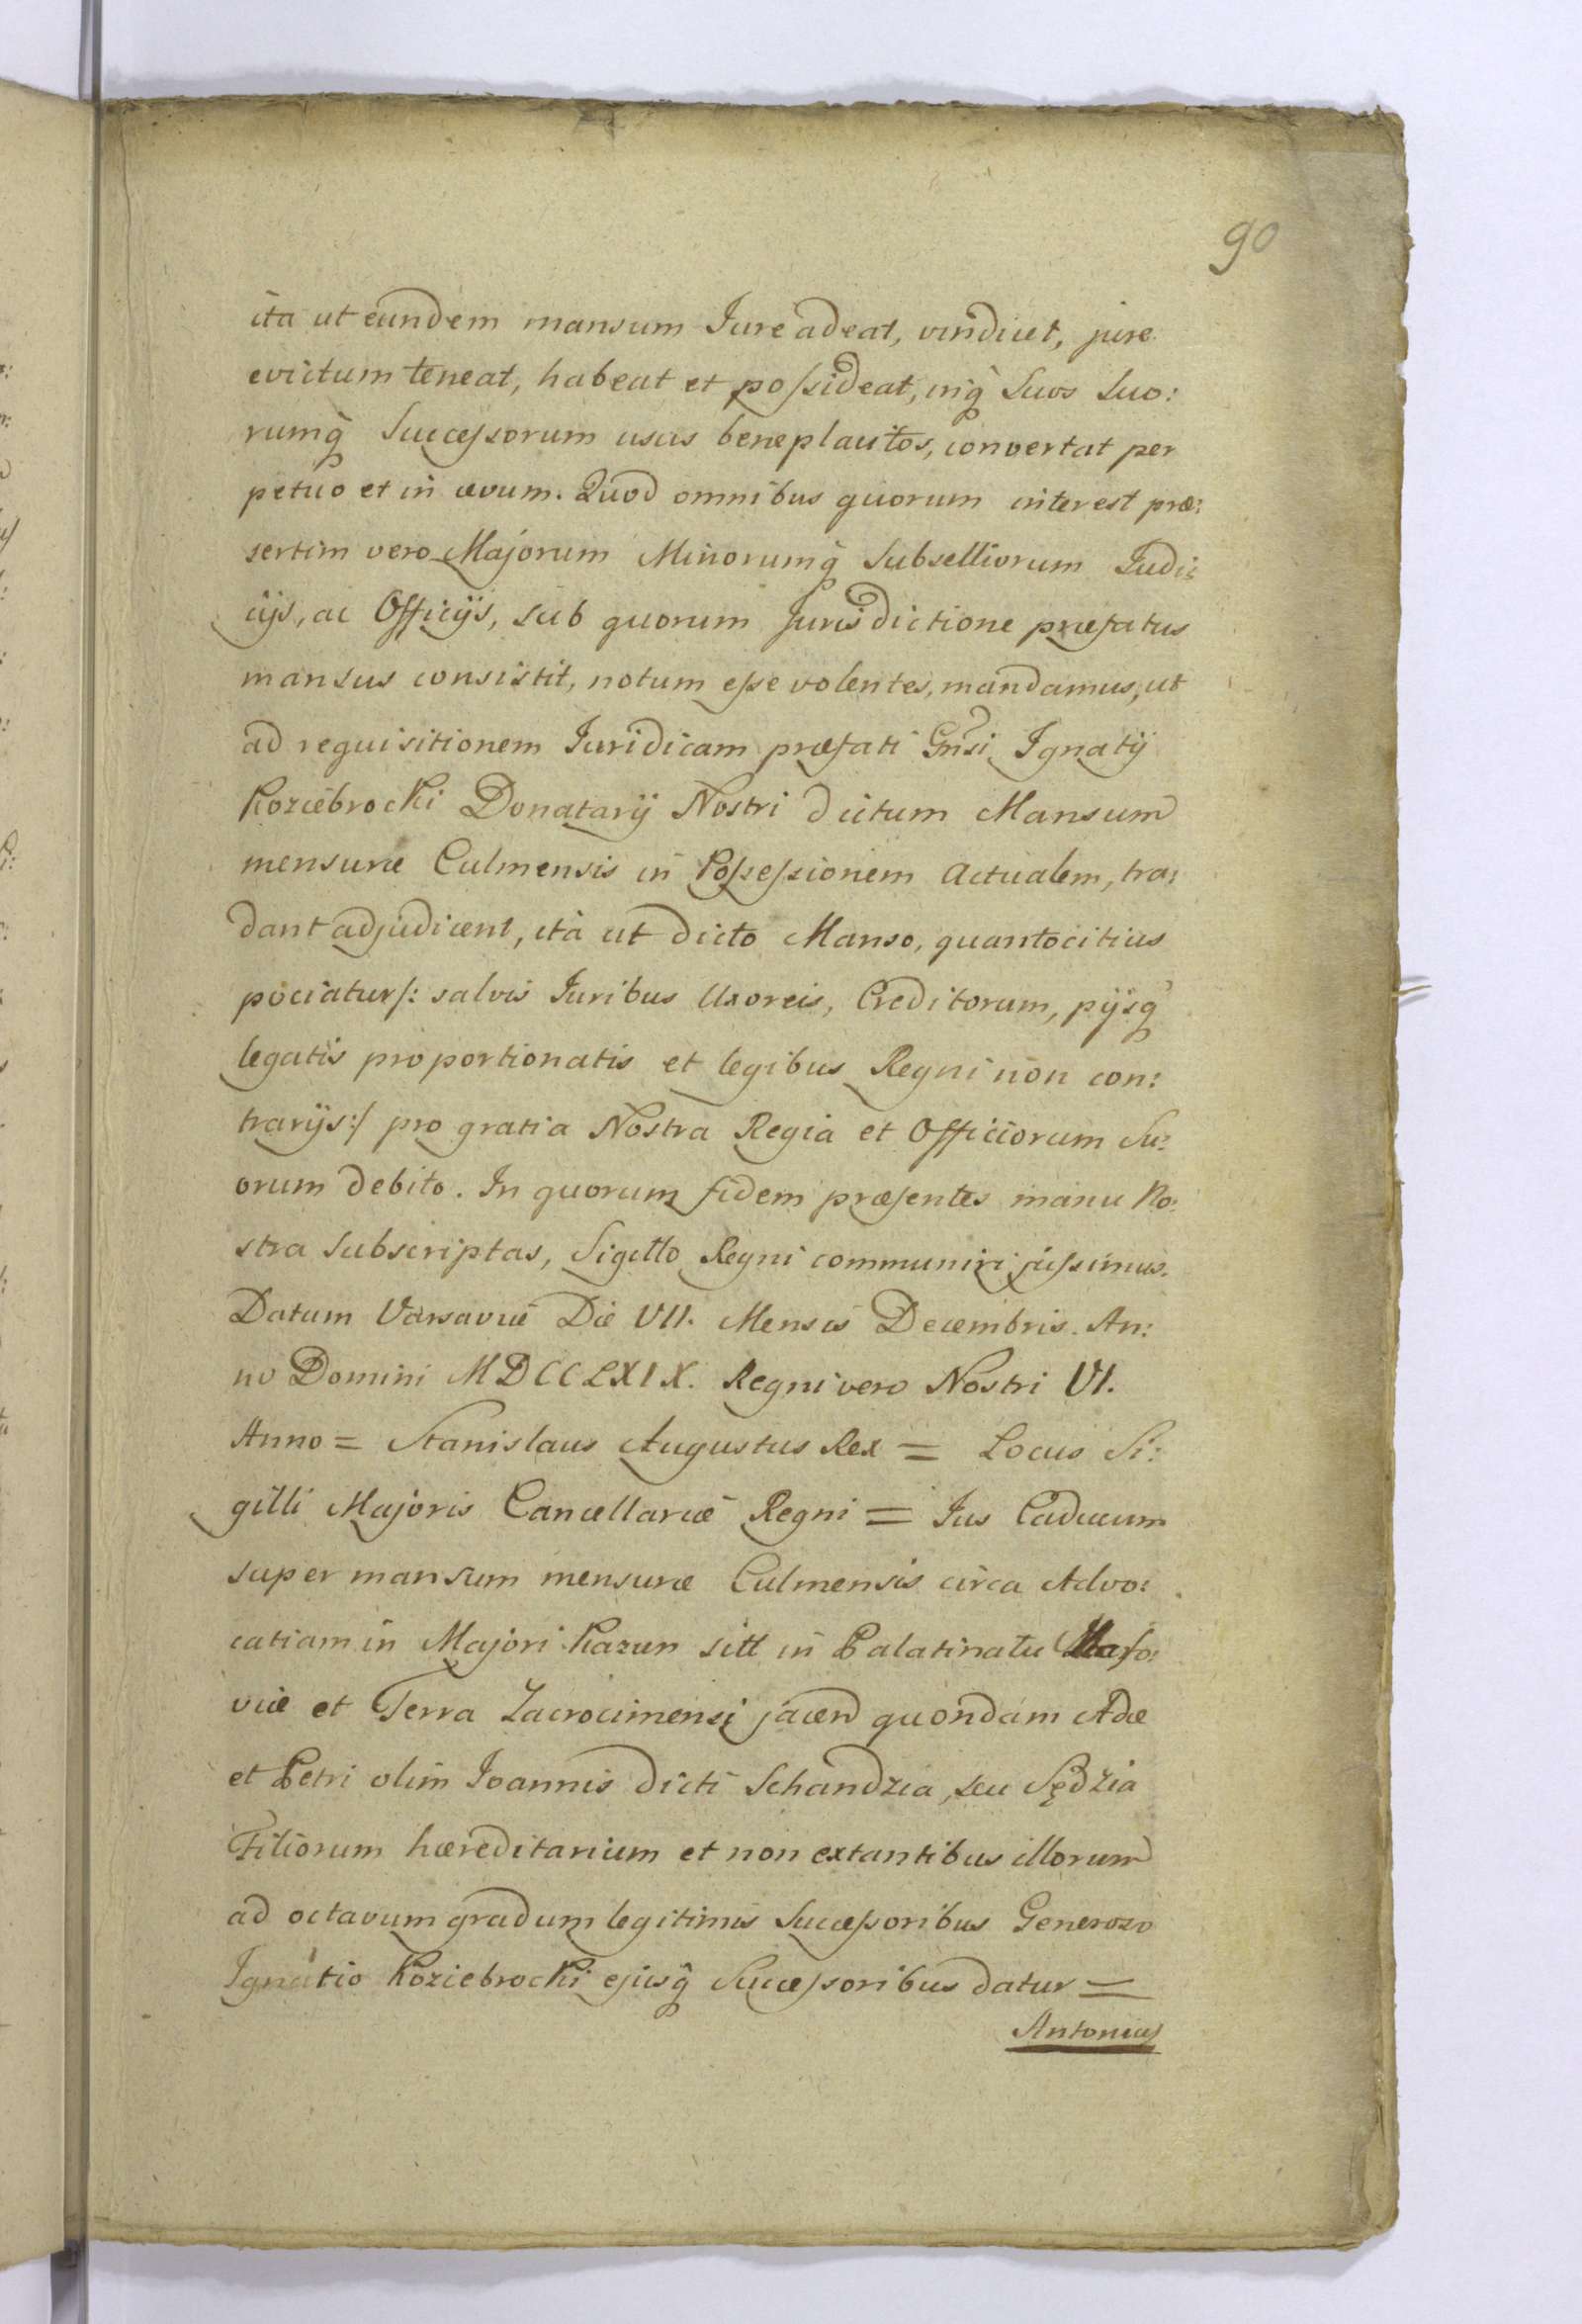 90
ita ut eundem mansum Jure adeat, vindicet, jure
evictum teneat, habeat et possideat, inq̃ Suos Suo:
rumq̃ Successorum usus beneplacitos, convertat per
petuo et in ævum. Quod omnibus quorum interest præ:
sertim vero Majorum Minorumq̃ Subselliorum Judi:
cijs, ac Officijs, sub quorum Jurisdictione præfatus
mansus consistit, notum esse volentes, mandamus, ut
ad requisitionem Juridicam præfati Gnsi Ignatij
Koziebrocki Donatarij Nostri dictum Mansum
mensuræ Culmensis in Possessionem Actualem, tra:
dant adjudicent, ità ut dicto Manso, quantocitius
pociatur /: salvis Juribus Uxoreis, Creditorum, pijsq̃
legatis proportionatis et legibus Regni non con:
trarijs :/ pro gratia Nostra Regia et Officiorum Su:
orum debito. In quorum fidem præsentes manu No:
stra Subscriptas, Sigillo Regni communiri jussimus.
Datum Varsaviæ Die VII. Mensis Decembris. An:
no Domini MDCCLXIX. Regni vero Nostri VI.
Anno = Stanislaus Augustus Rex = Locus Si:
gilli Majoris Cancellariæ Regni = Jus Caducum
super mansum mensuræ Culmensis circa Advo:
catiam in Majori Kazun sitt in Palatinatu Maso:
viæ et Terra Zacrocimensi jacen quondam Adæ
et Petri olim Joannis dicti Schandzia, seu Sędzia
Filiorum hæreditarium et non extantibus illorum
ad octavum gradum legitimis Successoribus Generoso
Ignatio Koziebrocki ejusq̃ Successoribus datur =
Antonius